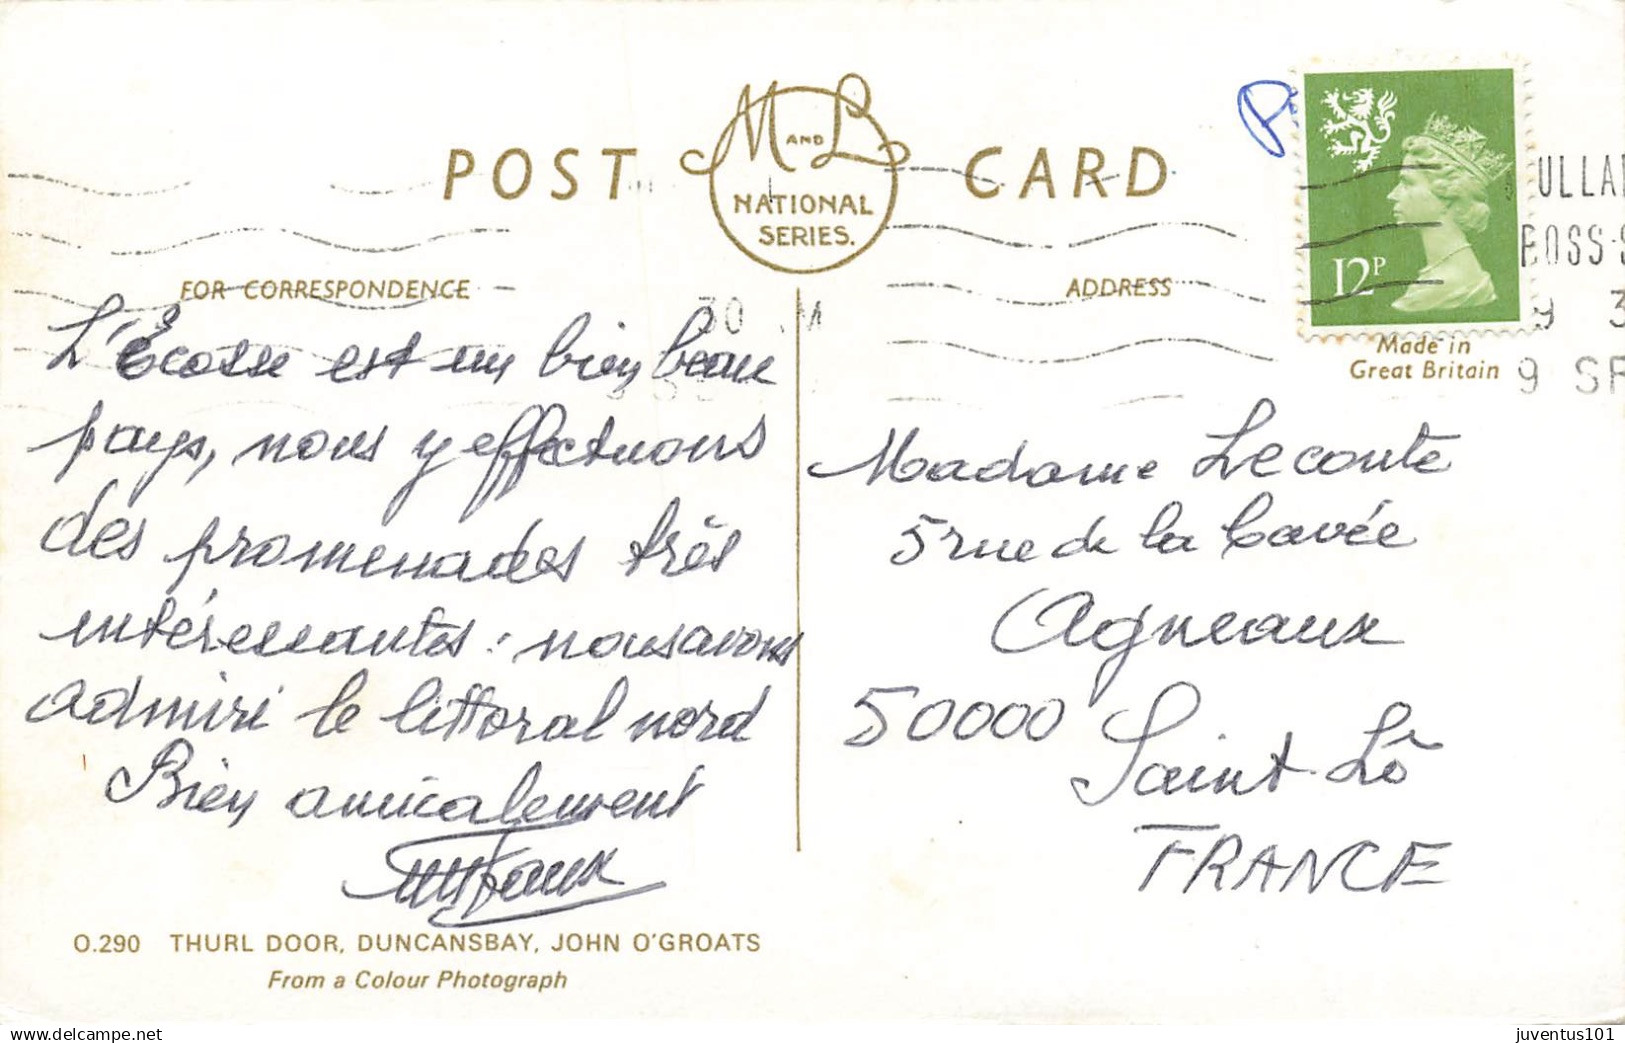 POST CARD
M AND L
NATIONAL
SERIES.
FOR CORRESPONDENCE
ADDRESS
12P
ULLA
ROSS-S
30
9 3
9 SE
Made in
Great Britain
L'Écosse est un bien beau
pays, nous y effectuons
des promenades très
intéressantes : nous avons
admiré le littoral nord
Bien amicalement
Madame Leconte
5 rue de la Cavée
Agneaux
50000
Saint-Lô
FRANCE
O.290 THURL DOOR, DUNCANSBAY, JOHN O'GROATS
From a Colour Photograph
juventus101